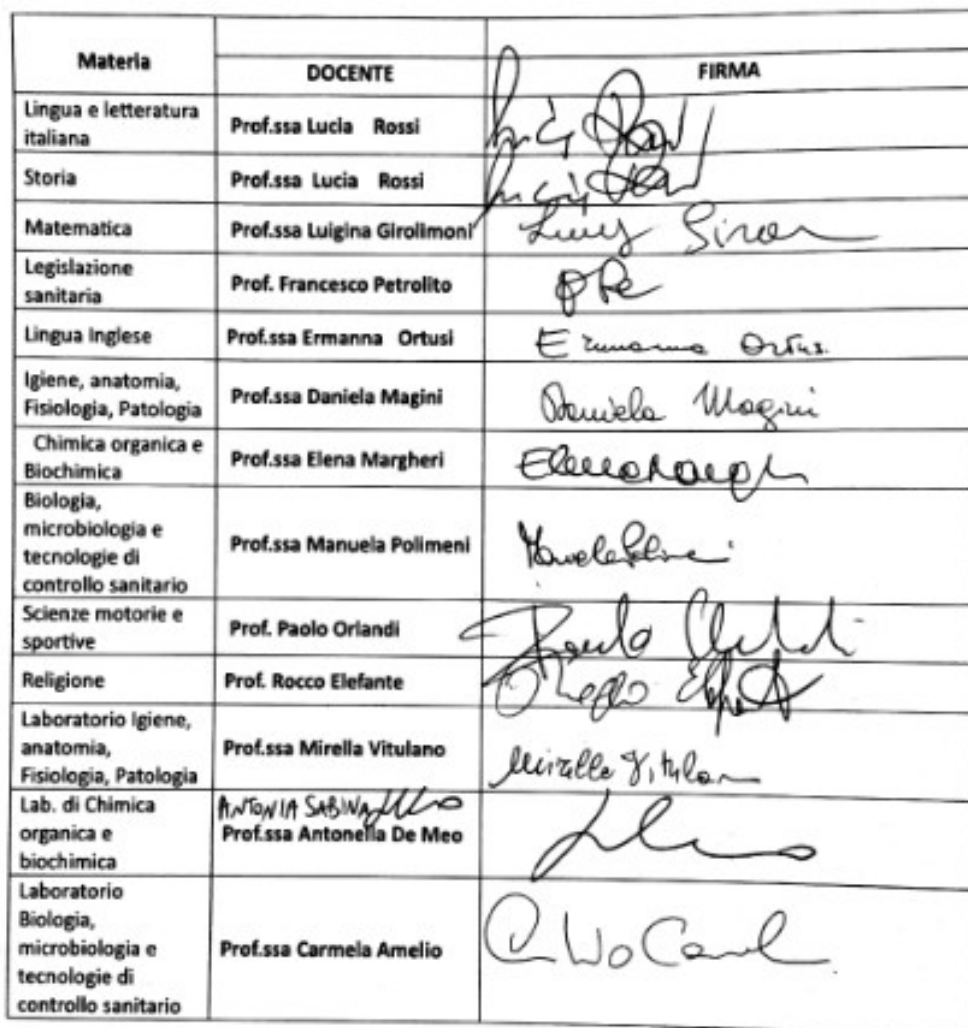 Materia
DOCENTE
FIRMA
Lingua e letteratura
italiana
Prof.ssa Lucia Rossi
Storia
Prof.ssa Lucia Rossi
Matematica
Prof.ssa Luigina Girolimoni
Legislazione
sanitaria
Prof. Francesco Petrolito
Lingua Inglese
Prof.ssa Ermanna Ortusi
Igiene, anatomia,
Fisiologia, Patologia
Prof.ssa Daniela Magini
Daniela Magini
Chimica organica e
Biochimica
Prof.ssa Elena Margheri
Biologia,
microbiologia e
tecnologie di
controllo sanitario
Prof.ssa Manuela Polimeni
Scienze motorie e
sportive
Prof. Paolo Orlandi
Religione
Prof. Rocco Elefante
Laboratorio Igiene,
anatomia,
Fisiologia, Patologia
Prof.ssa Mirella Vitulano
Lab. di Chimica
organica e
biochimica
ANTONIA SABINA
Prof.ssa Antonella De Meo
Laboratorio
Biologia,
microbiologia e
tecnologie di
controllo sanitario
Prof.ssa Carmela Amelio